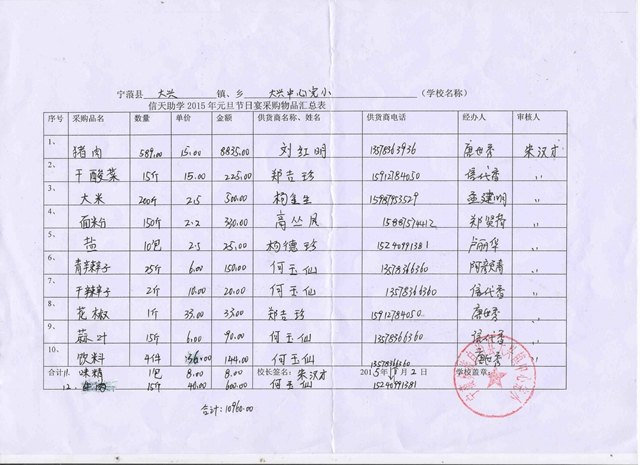 宁蒗县 大兴 镇、乡 大兴中心完小 （学校名称）
信天助学2015年元旦节日宴采购物品汇总表
序号 采购品名 数量 单价 金额 供货商名称、姓名 供货商电话 经办人 审核人
1、 猪肉 589.00 15.00 8835.00 刘红明 13578363936 朱汉才
2、 干酸菜 15斤 15.00 225.00 郑吉珍 15912784050 〃
3、 大米 200斤 2.5 500.00 杨金生 15987953529 孟建明 〃
4、 面粉 150斤 2.2 330.00 高丛凤 15887574412 〃
5、 盐 10包 2.5 25.00 杨德珍 15240991381 卢丽华 〃
6、 青辣子 25斤 6.00 150.00 何玉仙 13578366360 〃
7、 干辣子 2斤 10.00 20.00 何玉仙 13578366360 〃
8、 花椒 1斤 33.00 33.00 郑吉珍 15912784050 〃
9、 蒜叶 15斤 6.00 90.00 何玉仙 13578366360 〃
10、 饮料 4件 36.00 144.00 何玉仙 13578366360 〃
合计 11. 味精 1包 8.00 8.00 校长签名： 朱汉才 2015年1月2日 学校盖章：
12. 牛肉 15斤 40.00 600.00 何玉仙 15240991381
合计：10960.00